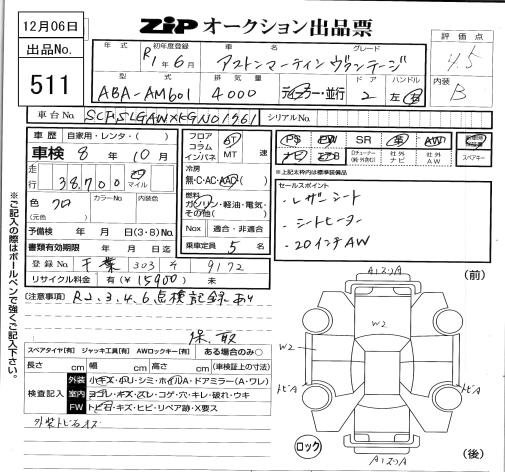 12月06日
ZIP オークション出品票
評価点
4.5
出品No.
511
年式
初年度登録
車名
グレード
R1年6月
アストンマーティン ヴァンテージ
内装
B
型式
排気量
ドア
ハンドル
ABA-AM601
4000
ディーラー・並行
2
左・右
車台No.
シリアルNo.
車歴
自家用・レンタ・( )
車検 8年10月
走行
38,700
マイル
色
カラーNo
内装色
クロ
(元色)
予備検 年 月 日(3・8)No.
書類有効期限 年 月 日迄
登録No
千葉 303 9172
リサイクル料金 有(¥15900)未
フロア
コラム
インパネ
AT
MT
速
冷房
無・C・AC・AAC・( )
燃料
ガソリン・軽油・電気・
その他( )
Nox
適合・非適合
乗車定員 5名
PS
PW
SR
革
AW
ナビ
TV
Dチューナー
(地・外含む)
社外
ナビ
社外
AW
スペアキー
※上記太枠内は標準装備品
セールスポイント
・レザーシート
・シートヒーター
・20インチAW
※ご記入の際はボールペンで強くご記入下さい。
[注意事項] R2.3.4.6 点検記録あり
保、取
スペアタイヤ[有] ジャッキ工具[有] AWロックキー[有] ある場合のみ○
長さ cm 幅 cm 高さ cm (車検証上の寸法)
検査記入
外装
小キズ・小凹・シミ・ホイルA・ドアミラー(A・ワレ)
室内
ヨゴレ・キズ・スレ・コゲ・穴・キレ・破れ・ウキ
FW
トビ石・キズ・ヒビ・リペア跡・X要ス
(前)
W2
W2
トビA
トビA
ロック
(後)